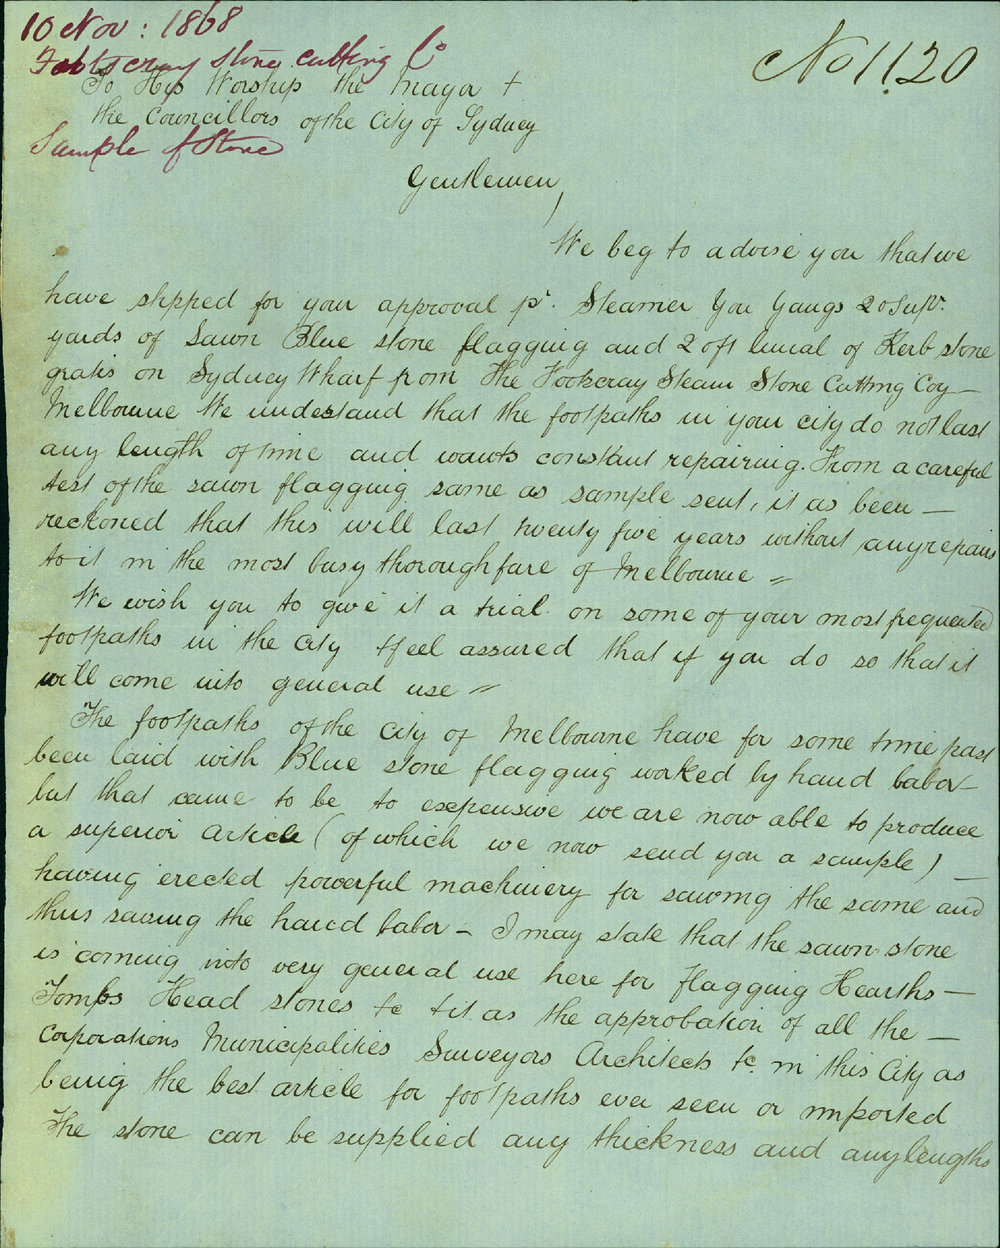 10 Nov : 1868
Footscray stone cutting Co
No 1120
To His Worship the Mayor +
the Councillors of the City of Sydney
Sample of Stone
Gentlemen,
We beg to advise you that we
have shpped for your approval pr. Steamer You Yangs 20 Supr.
yards of Sawn Blue stone flagging and 20 ft lineal of Kerb stone
gratis on Sydney Wharf from the Footscray Steam Stone Cutting Coy —
Melbourne We understand that the footpaths in your city do not last
any length of time and wants constant repairing. From a careful
test of the sawn flagging same as sample sent, it as been —
reckoned that this will last twenty five years without any repairs
to it in the most busy thoroughfare of Melbourne =
We wish you to give it a trial on some of your most frequented
footpaths in the city + feel assured that if you do so that it
will come into general use =
The footpaths of the city of Melbourne have for some time past
been laid with Blue stone flagging worked by hand labor —
but that came to be to expensive we are now able to produce
a superior article ( of which we now send you a sample ) —
having erected powerful machinery for sawing the same and
thus saving the hand labor — I may state that the sawn stone
is coming into very general use here for flagging Hearths —
Tombs Head stones &c + it as the approbation of all the —
Corporations Municipalities Surveyors Architects &c. in this City as
being the best article for footpaths ever seen or imported
The stone can be supplied any thickness and any lengths